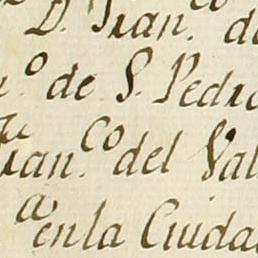 D. Fran.co de
n.o de S. Pedro
Fran.co del Val
a en la Ciudad